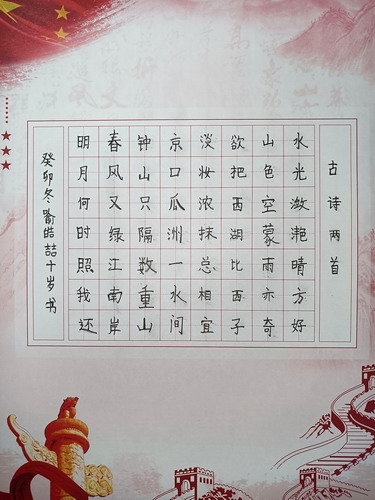 古诗两首
水光潋滟晴方好
山色空蒙雨亦奇
欲把西湖比西子
淡妆浓抹总相宜
京口瓜洲一水间
钟山只隔数重山
春风又绿江南岸
明月何时照我还
癸卯冬喻皓喆十岁书